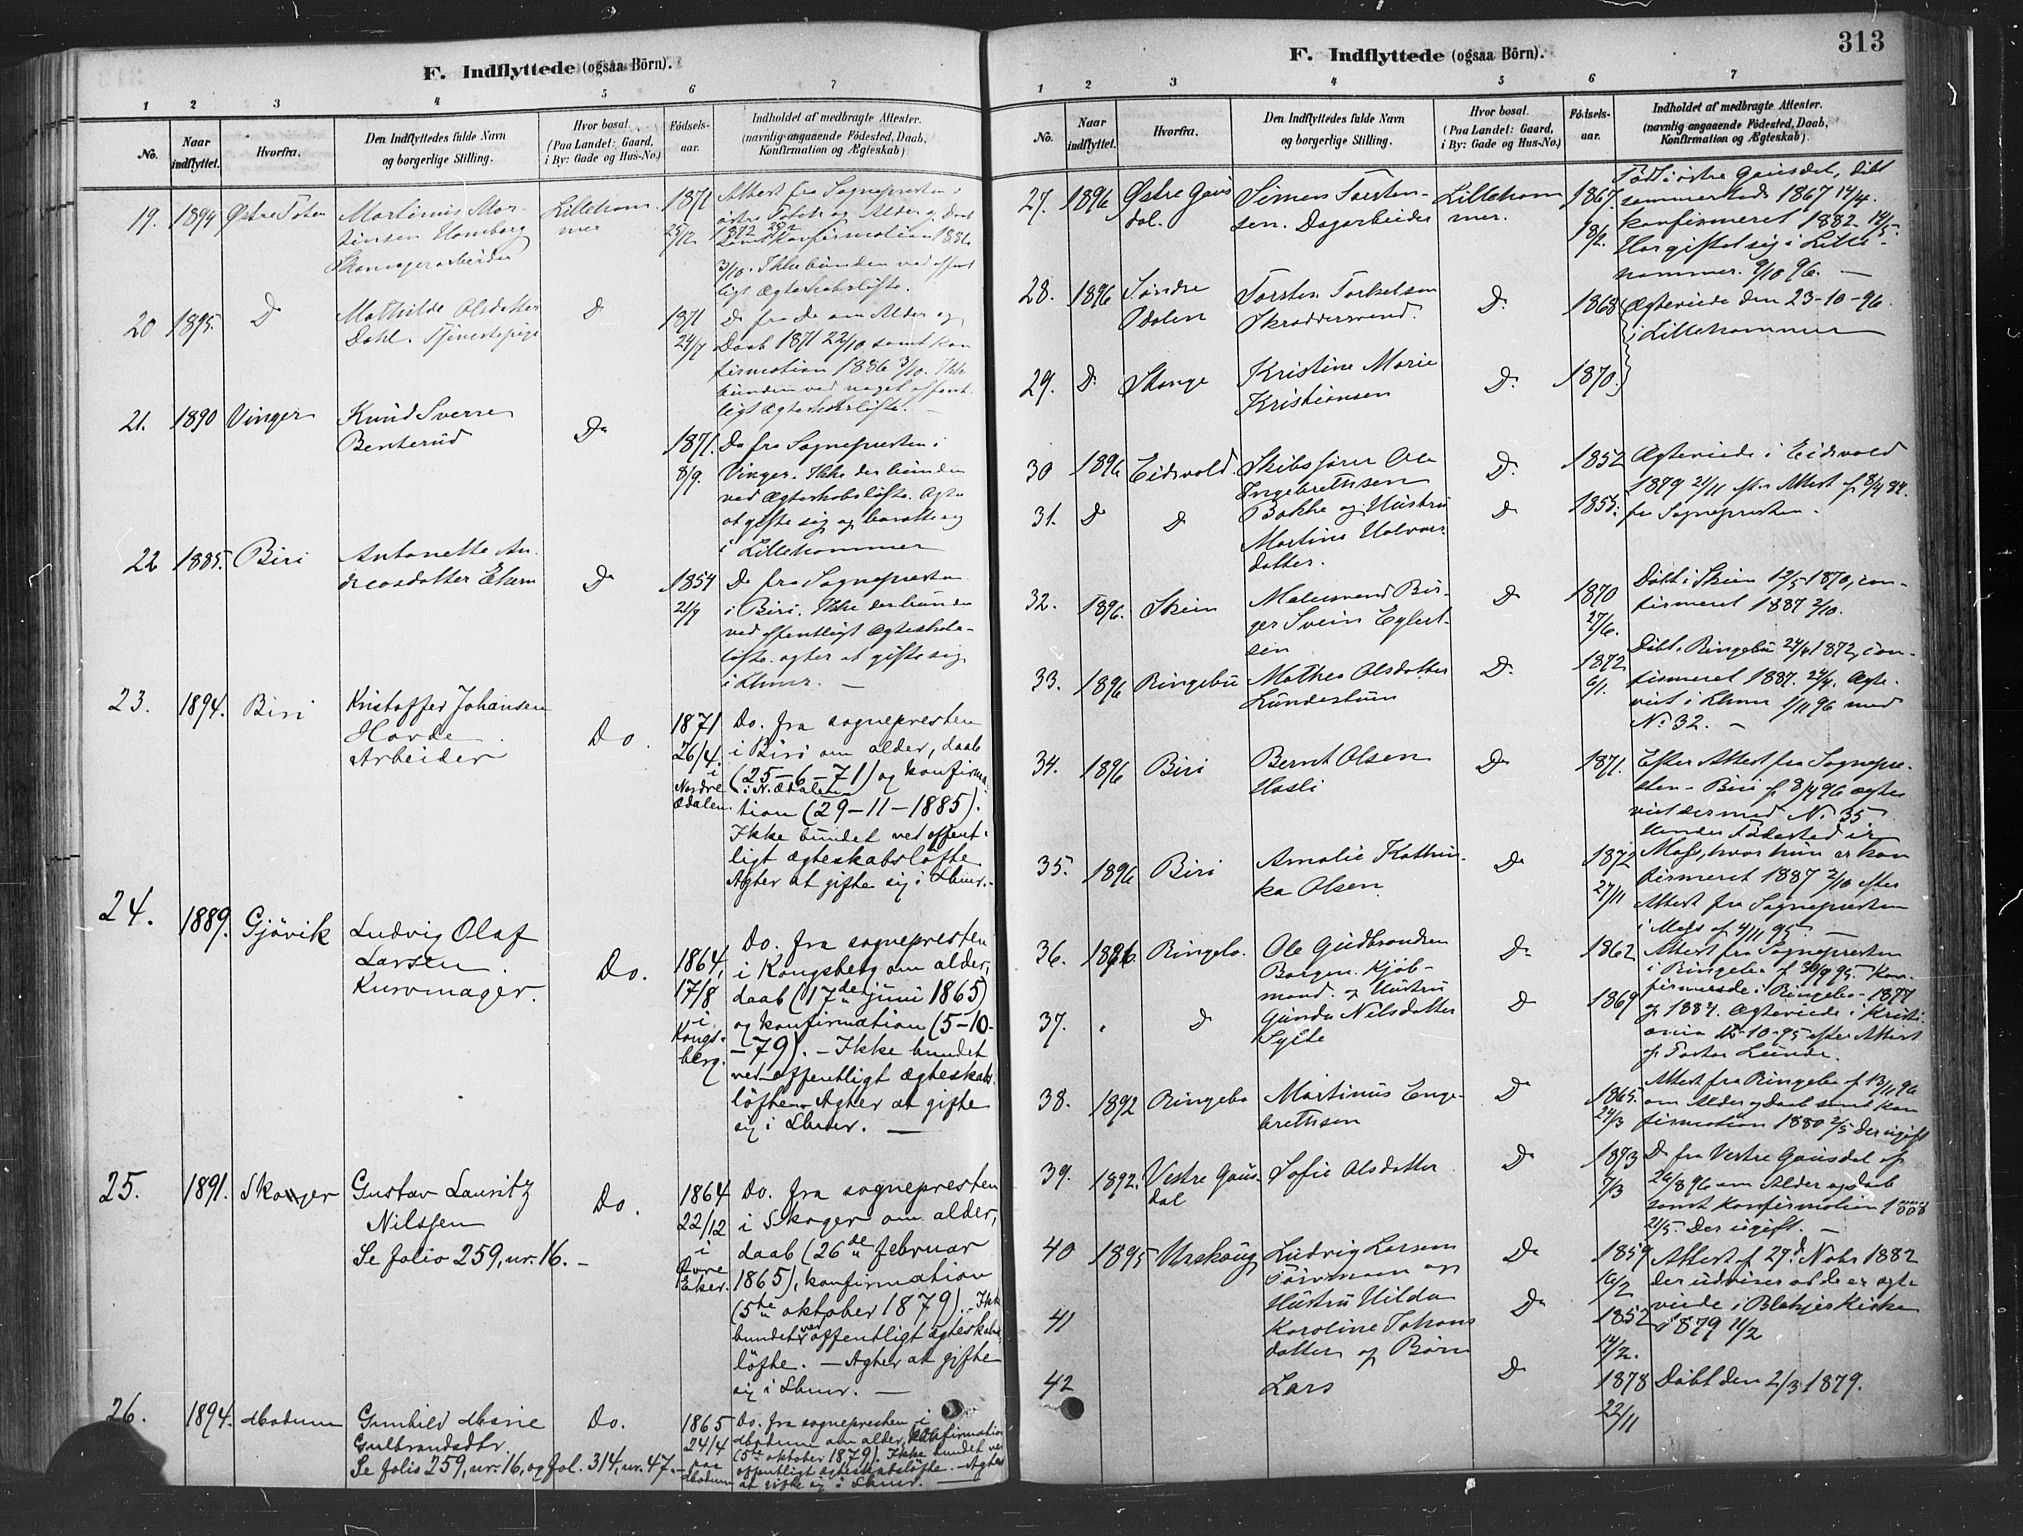 F. Indflyttede (ogsaa Börn).
1 2 3 4 5 6 7
No. Naar indflyttet. Hvorfra. Den Indflyttedes fulde Navn og borgerlige Stilling. Hvor bosat. (Paa Landet: Gaard, i By: Gade og Hus-No.) Födsels-aar. Indholdet af medbragte Attester. (navnlig angaaende Födested, Daab, Konfirmation og Ægteskab)
19. 1894 Østre Toten Martinus Mar-
tinsen Homborg
Skomagerarbeider
Lillehammer
1871
25/12
Attest fra Sognepresten i
østre Toten og Alder og Daab
1872
samt Konfirmation 1886
3/10. Ikke bunden ved offent
ligt Ægteskabsløfte.
20 1895. D Mathilde Olsdatter
Dahl. Tjenestepige
D
1871
24/7
Do fra Do om Alder og
Daab 1871 22/10 samt Kon
firmation 1886 3/10. Ikke
bunden ved noget offent
ligt Ægteskabsløfte. —
21. 1890 Vinger Knud Sverre
Benterud
Do
1871.
8/9.
Do fra Sognepresten i
Vinger. Ikke der bunden
ved Ægteskabsløfte. Agter
at gifte sig og bosætte sig
i Lillehammer
22 1885. Biri Antonette An-
dreasdatter Ekern
Do
1854
21/7
Do fra Sognepresten
i Biri. Ikke der bunden
ved offentligt Ægteskabs-
løfte. agter at gifte sig
i Lhmr. —
23. 1894. Biri Kristoffer Johansen
Hovde
Arbeider
Do.
1871
26/4.
i
Nordre
Odalen.
Do. fra sognepresten
i Biri om alder, daab
(25-6-71) og konfirma-
i N. Odalen
tion (29-11-1885).
Ikke bundet ved offent-
ligt ægteskabsløfte
Agter at gifte sig i Lhmr.-
24. 1889. Gjøvik Ludvig Olaf
Larsen.
Kurvmager.
Do.
1864,
17/8
i
Kongs-
berg.
Do. fra sognepresten
i Kongsberg om alder,
daab (17de juni 1865)
og konfirmation (5-10-
-79). - Ikke bundet
ved offentligt ægteskabs-
løfte. Agter at gifte
sig i Lhmr. —
25. 1891. Skoger Gustav Lauritz
Nilssen
Se folio 259, nr. 16. -
Do.
1864
22/12
i
Øvre
Eker.
Do. fra sognepresten
i Skoger om alder,
daab (26de februar
1865), konfirmation
(5te oktober 1879). - Ikke
bundet ved offentligt ægteskabs-
løfte. - Agter at gifte
sig i Lhmr. —
26. 1894. Modum Gunhild Marie
Gulbrandsdtr.
Se folio 259, nr. 16, og fol. 314, nr. 47. -
Do.
1865
24/4
paa
Modum
Do. fra sognepresten i
Modum om alder, konfirmation
(5te oktober 1879). Ikke bundet ved
offentligt ægteskabsløfte. - Agter
at gifte sig i Lhmr. —
313
F. Indflyttede (ogsaa Börn).
1 2 3 4 5 6 7
No. Naar indflyttet. Hvorfra. Den Indflyttedes fulde Navn og borgerlige Stilling. Hvor bosat. (Paa Landet: Gaard, i By: Gade og Hus-No.) Födsels-aar. Indholdet af medbragte Attester. (navnlig angaaende Födested, Daab, Konfirmation og Ægteskab)
27. 1896 Østre Gaus
dal.
Simen Torsten-
sen. Dagarbeider
Lilleham
mer.
1867.
18/2.
Født i østre Gausdal, døbt
sammesteds 1867 14/4.
Konfirmeret 1882 14/5.
Har giftet sig i Lille-
hammer. 9/10 96. —
28. 1896 Søndre
Odalen
Torsten Torkelsen
Skræddersvend.
D.
1868
Ægteviede den 23-10-96.
i Lillehammer
29. D. Stange Kristine Marie
Kristiansen
D.
1870.
30 1896 Eidsvold. Skibsfører Ole
Ingebrethsen
D.
1852
Ægteviede i Eidsvold
1879 21/11 efter Attest af 8/4 84.
31. D D Bakke og Hustru
Martine Halvors-
datter.
D
1855.
fra Sognepresten. -
32. 1896. Skien Malersvend Bir-
ger Svein Eglert-
sen
D
1870
27/6.
Døbt i Skien 12/5 1870, con-
firmeret 1887 2/10.
33. 1896 Ringebu Mathea Olsdatter
Lundestuen
D.
1872
6/1.
Døbt. Ringebu 24/4 1872, con-
firmeret 1887. 24/4. Ægte-
viet i Lhmr 1/11 96 med
No 32. —
34. 1896 Biri Bernt Olsen
Hasli
D
1871.
Efter Attest fra Sognepre-
sten - Biri af 8/4 96 ægte
viet dermed No 35
35. 1896 Biri Amalie Kathrin-
ka Olsen.
D
1872
27/11
Hendes Fødested er
Moss, hvor hun er kon
firmeret 1887 2/10 efter
Attest fra Sognepresten
i Moss af 4/11 95. —
36. 1896 Ringebo. Ole Gudbrandsen
Borgen. Kjøb-
mand. og Hustru
D
1862
Attest fra Sognepresten
i Ringebo af 30/9 95. Kon-
firmerede i Ringebo - 1877
37. D Gunda Nilsdatter
Sylte
D
1869
og 1884. Ægteviede i Kristi-
ania 15-10-95 efter Attest
af Pastor Lunde.
38. 1892 Ringebo Martinus Enge-
brethsen
D
1865.
24/3
Attest fra Ringebo af 13/11 96
om Alder og Daab samt Kon
firmation 1880 2/5 Der ugift
39. 1892. Vestre Gaus-
dal
Sofie Olsdatter
D
1873
7/3
D fra Vestre Gausdal af
26/8 96 om Alder og Daab
samt Konfirmation 1888
21/5. Der ugift. —
40 1895 Urskoug Ludvig Larsen
og
Hustru Hilda
Do
1859
16/2
Attest af 27. Nobr 1882
der udviser at de er ægte
viede i Blakjer Kirke
41 Karoline Johans
datter og Børn
Do
1852
14/2.
1879 11/2
42 Lars
D
1878
22/11
Døbt den 2/3 1879.